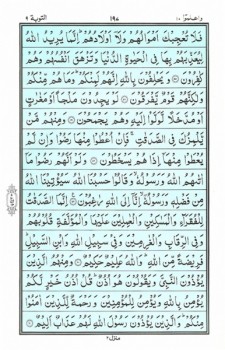 واعلموا ١٠ ١٩٨ التوبة ٩
فَلَا تُعْجِبْكَ اَمْوَالُهُمْ وَلَآ اَوْلَادُهُمْ اِنَّمَا يُرِيْدُ اللّٰهُ
لِيُعَذِّبَهُمْ بِهَا فِى الْحَيٰوةِ الدُّنْيَا وَتَزْهَقَ اَنْفُسُهُمْ وَهُمْ
كٰفِرُوْنَ ۞ وَيَحْلِفُوْنَ بِاللّٰهِ اِنَّهُمْ لَمِنْكُمْ وَمَا هُمْ مِّنْكُمْ
وَلٰكِنَّهُمْ قَوْمٌ يَّفْرَقُوْنَ ۞ لَوْ يَجِدُوْنَ مَلْجَاً اَوْ مَغٰرٰتٍ
اَوْ مُدَّخَلًا لَّوَلَّوْا اِلَيْهِ وَهُمْ يَجْمَحُوْنَ ۞ وَمِنْهُمْ مَّنْ
يَّلْمِزُكَ فِى الصَّدَقٰتِ فَاِنْ اُعْطُوْا مِنْهَا رَضُوْا وَاِنْ لَّمْ
يُعْطَوْا مِنْهَآ اِذَا هُمْ يَسْخَطُوْنَ ۞ وَلَوْ اَنَّهُمْ رَضُوْا مَآ
اٰتٰىهُمُ اللّٰهُ وَرَسُوْلُهٗ وَقَالُوْا حَسْبُنَا اللّٰهُ سَيُؤْتِيْنَا اللّٰهُ
مِنْ فَضْلِهٖ وَرَسُوْلُهٗٓ اِنَّآ اِلَى اللّٰهِ رٰغِبُوْنَ ۞ اِنَّمَا الصَّدَقٰتُ
لِلْفُقَرَآءِ وَالْمَسٰكِيْنِ وَالْعٰمِلِيْنَ عَلَيْهَا وَالْمُؤَلَّفَةِ قُلُوْبُهُمْ
وَفِى الرِّقَابِ وَالْغٰرِمِيْنَ وَفِيْ سَبِيْلِ اللّٰهِ وَابْنِ السَّبِيْلِ
فَرِيْضَةً مِّنَ اللّٰهِ وَاللّٰهُ عَلِيْمٌ حَكِيْمٌ ۞ وَمِنْهُمُ الَّذِيْنَ
يُؤْذُوْنَ النَّبِيَّ وَيَقُوْلُوْنَ هُوَ اُذُنٌ قُلْ اُذُنُ خَيْرٍ لَّكُمْ
يُؤْمِنُ بِاللّٰهِ وَيُؤْمِنُ لِلْمُؤْمِنِيْنَ وَرَحْمَةٌ لِّلَّذِيْنَ اٰمَنُوْا
مِنْكُمْ وَالَّذِيْنَ يُؤْذُوْنَ رَسُوْلَ اللّٰهِ لَهُمْ عَذَابٌ اَلِيْمٌ ۞
منزل ٢